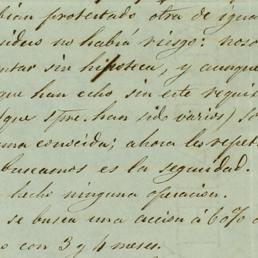 bian protestado otra de igua
sidero no habia riesgo: noso
ntar sin hipoteca, y aunque
que han echo sin este requi
(que han sido varios) so
ma conocida; ahora le repet
buscamos es la seguridad.
hecho ninguna operacion.
se busca una accion á 6 0/0 a
o con 3 y 4 meses.